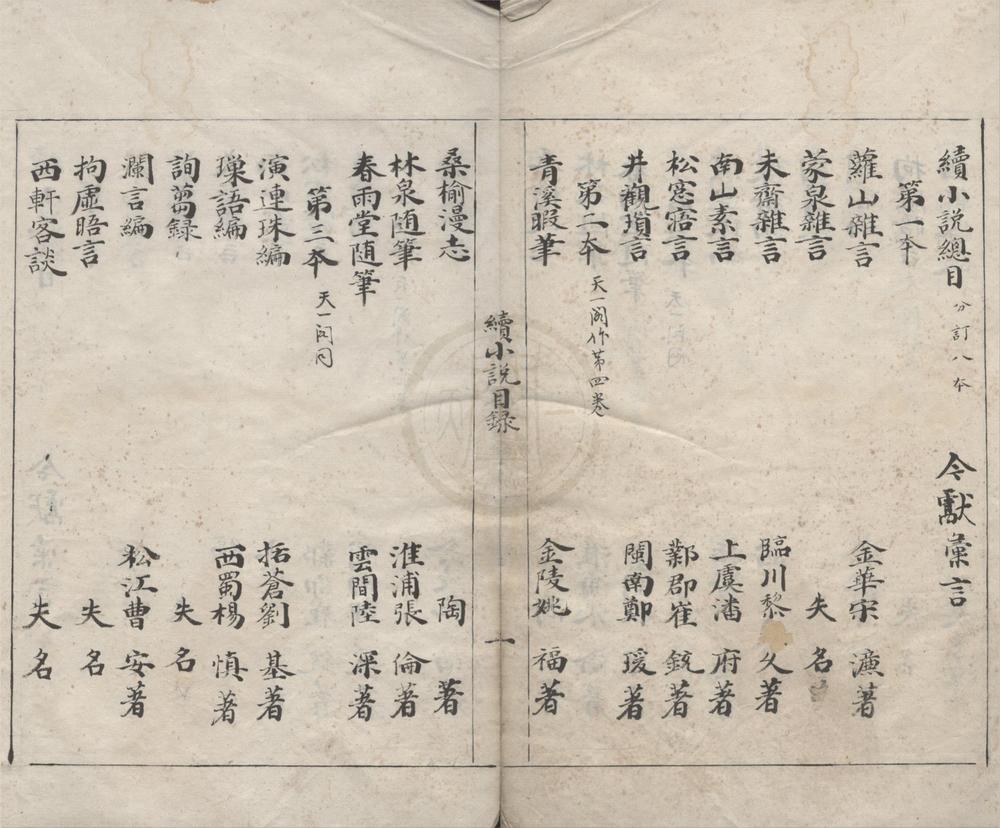 續小說總目 分訂八本 今獻彙言
第一本
蘿山雜言 金華宋濂著
蒙泉雜言 失名
未齋雜言 臨川黎久著
南山素言 上虞潘府著
松窓寤言 鄴郡崔銑著
井觀瑣言 閩南鄭瑗著
第二本 天一閣作第四卷
青溪暇筆 金陵姚福著
續小說目録 一
桑榆漫志 陶著
林泉随筆 淮浦張倫著
春雨堂随筆 雲間陸深著
第三本 天一閣同
演連珠編 括蒼劉基著
璅語編 西蜀楊慎著
詢蒭録 失名
瀾言編 松江曹安著
拘虛晤言 失名
西軒客談 失名